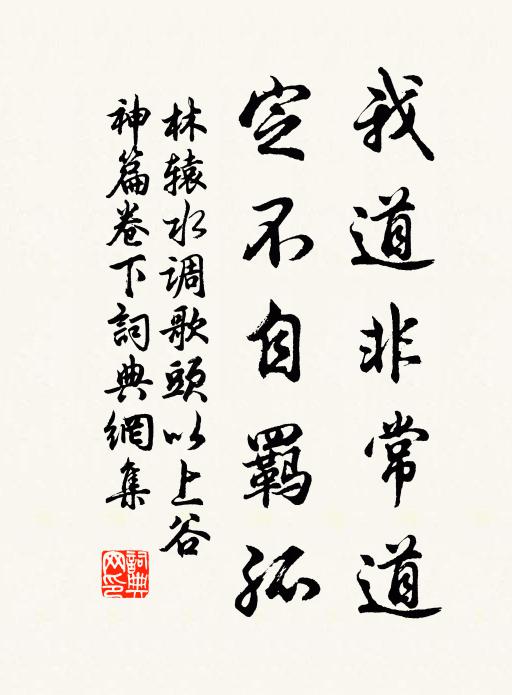 我道非常道
定不自羈孤
林辕水调歌頭以上谷
神篇卷下詞典網集
詞典
网印